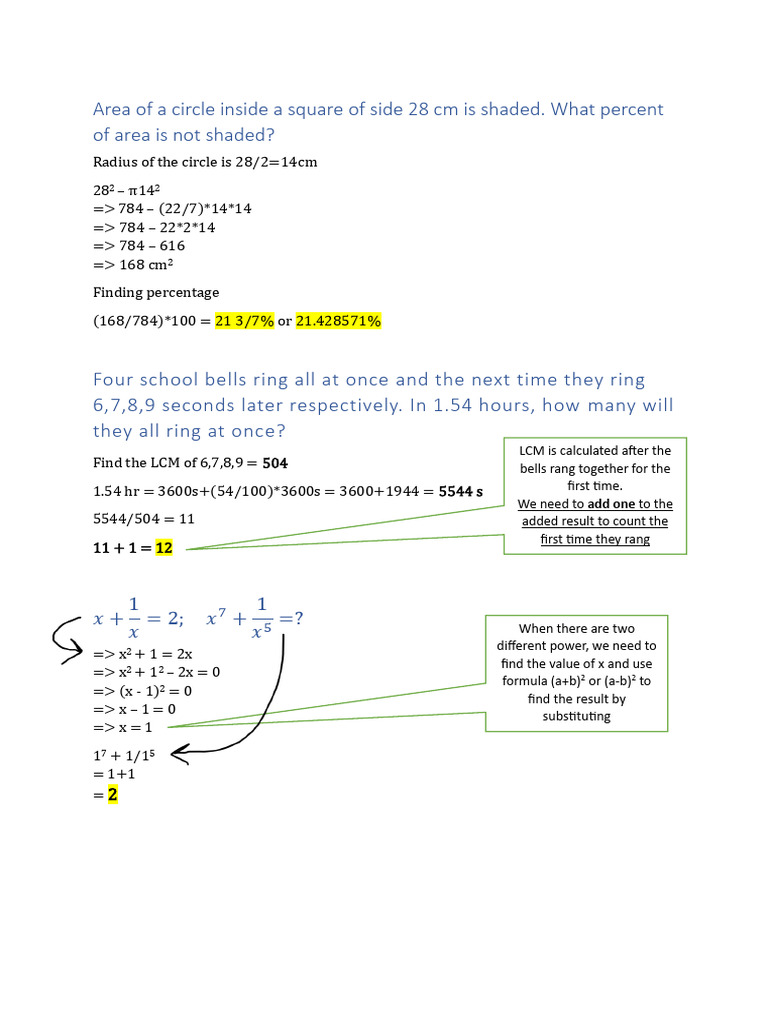 Area of a circle inside a square of side 28 cm is shaded. What percent
of area is not shaded?
Radius of the circle is 28/2=14cm
28² – π14²
=> 784 – (22/7)*14*14
=> 784 – 22*2*14
=> 784 – 616
=> 168 cm²
Finding percentage
(168/784)*100 = 21 3/7% or 21.428571%
Four school bells ring all at once and the next time they ring
6,7,8,9 seconds later respectively. In 1.54 hours, how many will
they all ring at once?
Find the LCM of 6,7,8,9 = 504
1.54 hr = 3600s+(54/100)*3600s = 3600+1944 = 5544 s
5544/504 = 11
11 + 1 = 12
LCM is calculated after the
bells rang together for the
first time.
We need to add one to the
added result to count the
first time they rang
x + 1/x = 2; x⁷ + 1/x⁵ =?
=> x² + 1 = 2x
=> x² + 1² – 2x = 0
=> (x - 1)² = 0
=> x – 1 = 0
=> x = 1
1⁷ + 1/1⁵
= 1+1
= 2
When there are two
different power, we need to
find the value of x and use
formula (a+b)² or (a-b)² to
find the result by
substituting